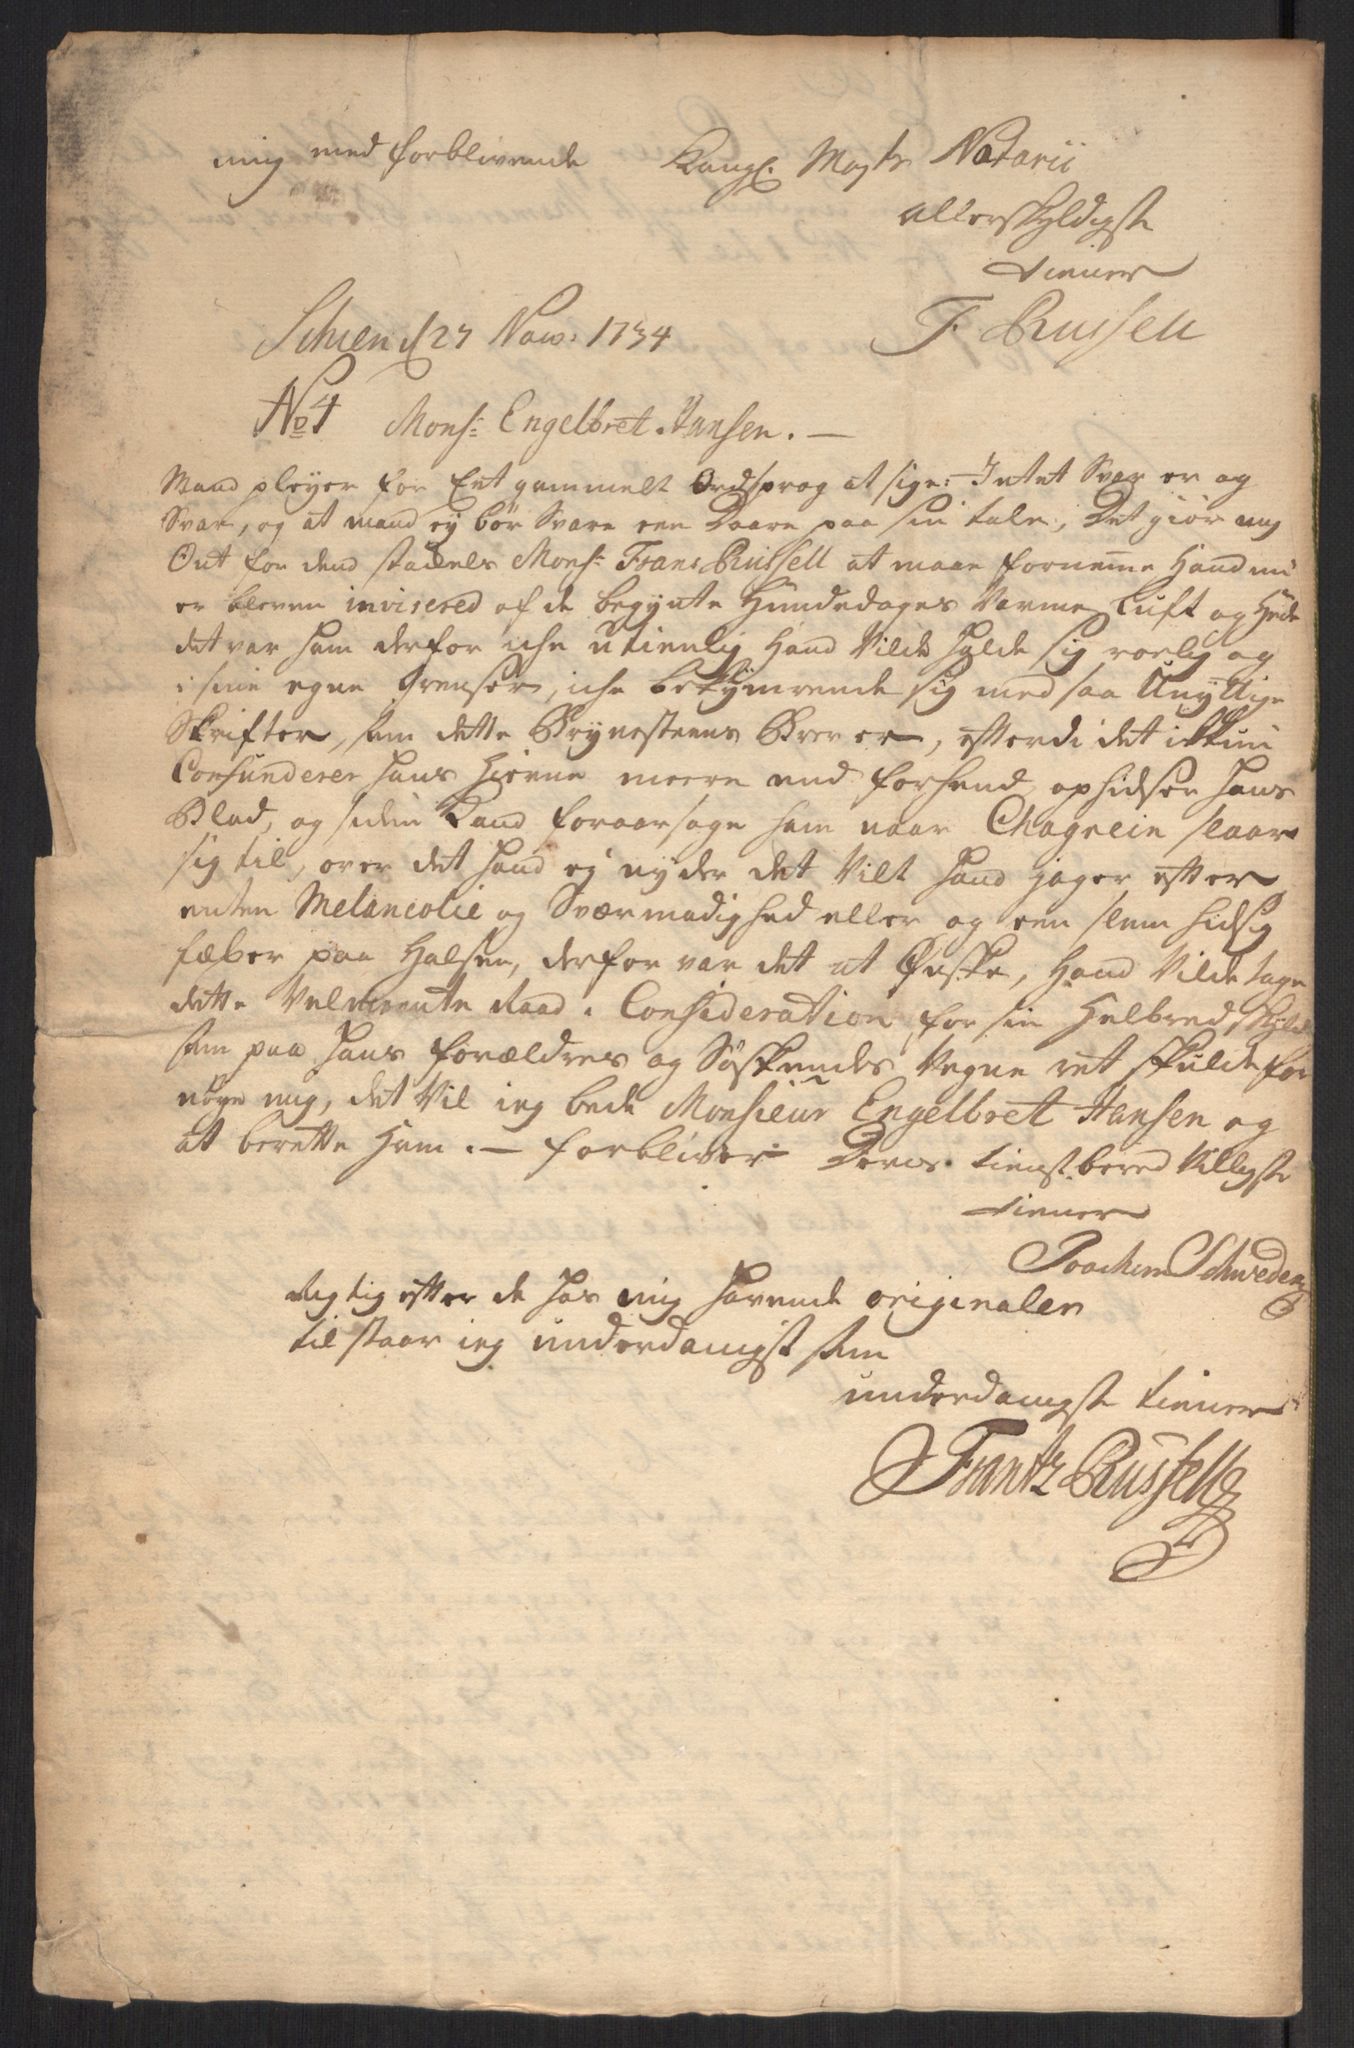 mig med forblivende Kongl. Maÿts Notarii
allerskyldigste
tiener
Schien d 27 Nov: 1734 F. Russell
No 4 Mons: Engelbret Hansen. —
Mand pleyer for Eet gammelt Ordsprog at sige: Intet Svar er og
Svar, og at mand ey bør Svare een Daare paa sin tale, Det giør mig
Ont for dend stackels Mons: Frans Russell at maae fornemme Hand nu
er bleven invisered af de begynte Hundedages Varme Luft og Hede
det var ham derfor iche utienlig Hand Vilde holde sig roelig og
i sine egne Grenser, iche bekÿmrende sig med saa Unÿttige
Skrifter, som dette Brynesteens Brev er, efterdi det ickun
Confunderer hans Hierne meere end forhend, ophidser hans
Blod, og siden Kand foraarsage ham naar Chagrein slaar
sig til, over det hand eÿ nyder det Vilt hand jager efter
enten Melancolie og Sværmodighed eller og een slem hidsig
fæber paa Halsen, derfor var det at Ønske, Hand Vilde tage
dette Velmeente Raad i Consideration for sin Helbred skyld
som paa hans forældres og Søskendes Vegne ret skulde for
nøye mig, det Vil ieg bede Monsieur Engelbret Hansen og
at berette Ham. — forbliver Deres tienstbered Villigste
tiener
Joachim Schweder
Rigtig efter de hos mig havende originaler
tilstaar ieg underdanigst som
underdanigste tiener
Frantz Russell